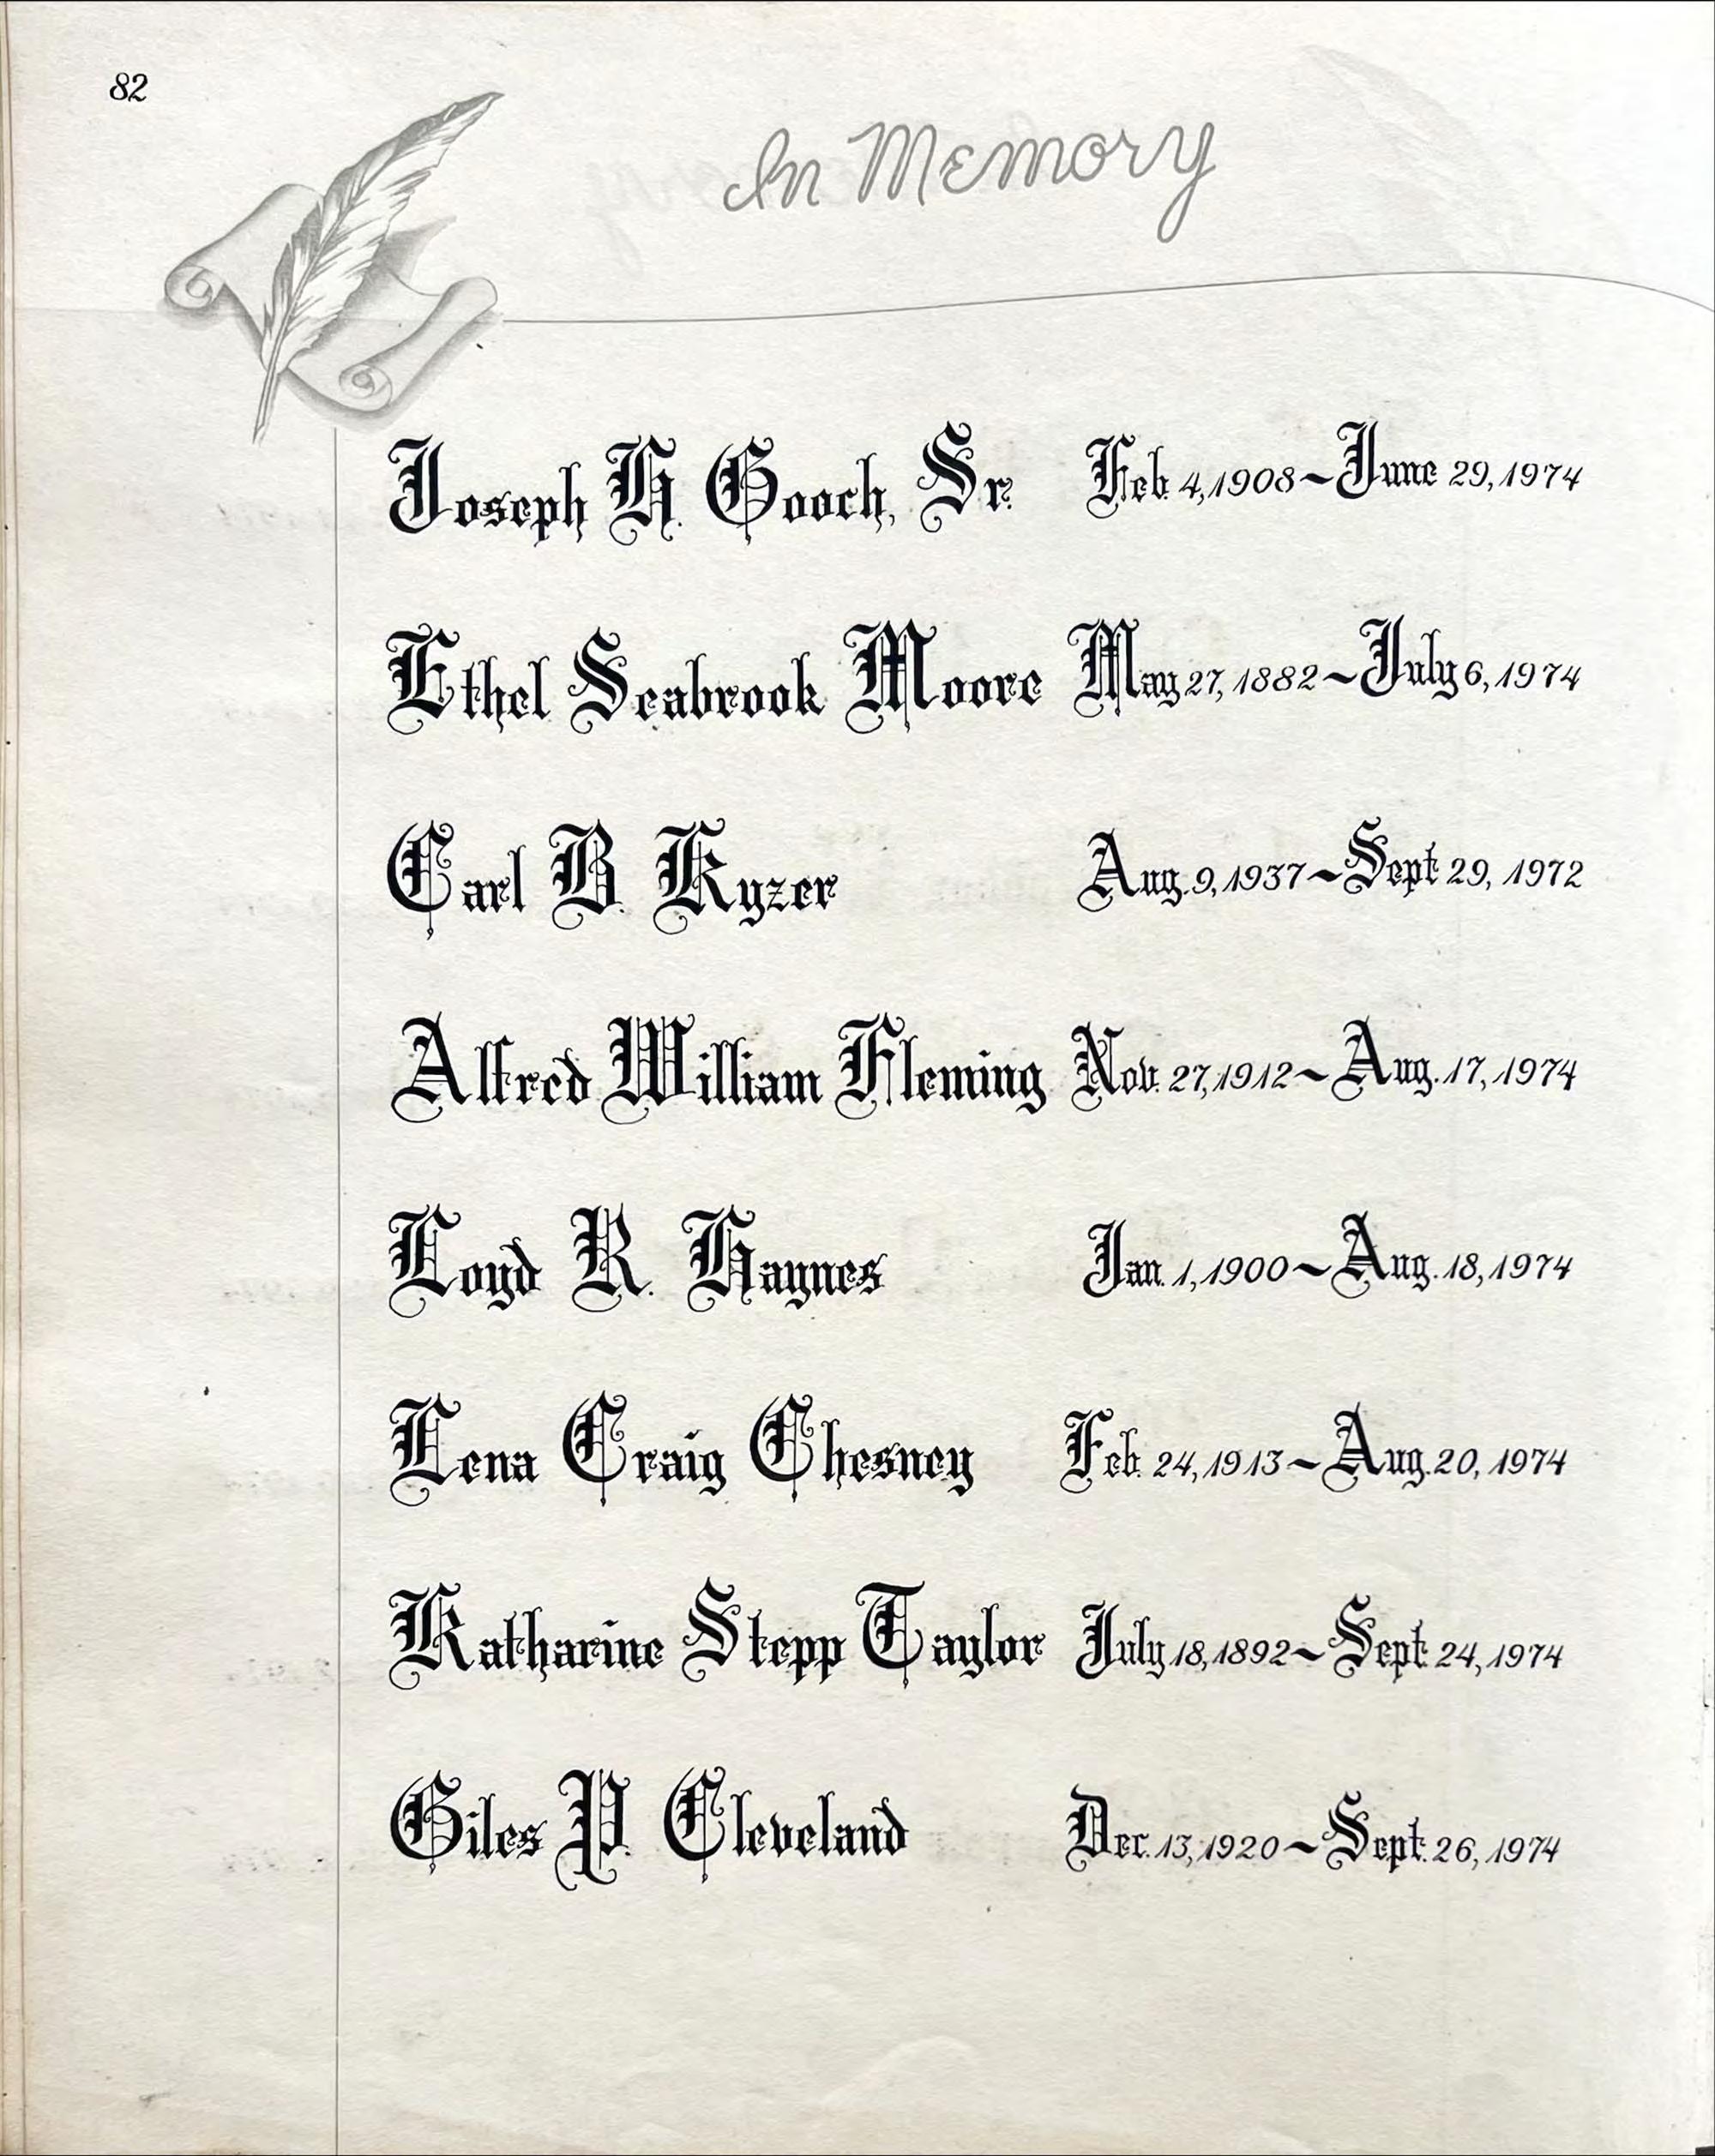 82
In Memory
Joseph H. Gooch, Sr. Feb. 4, 1908~June 29, 1974
Ethel Seabrook Moore May 27, 1882~July 6, 1974
Carl B. Kyzer Aug. 9, 1937~Sept. 29, 1972
Alfred William Fleming Nov. 27, 1912~Aug. 17, 1974
Loyd R. Haynes Jan. 1, 1900~Aug. 18, 1974
Lena Craig Chesney Feb. 24, 1913~Aug. 20, 1974
Katharine Stepp Taylor July 18, 1892~Sept. 24, 1974
Giles P. Cleveland Dec. 13, 1920~Sept. 26, 1974